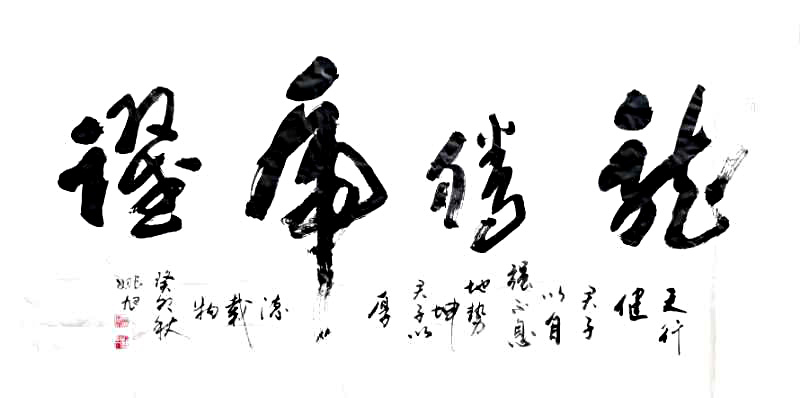 龍騰虎躍
天行健
君子以自強不息
地勢坤
君子以厚德載物
癸卯秋